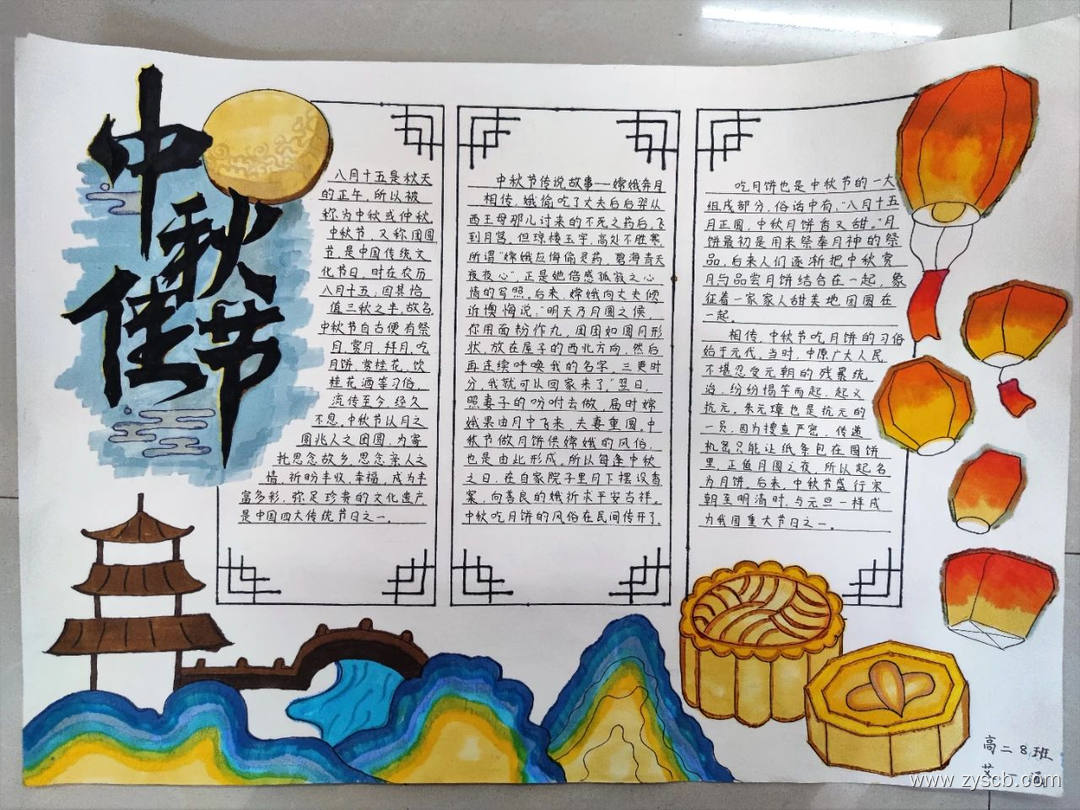 中秋佳节
八月十五是秋天
的正午,所以被
称为中秋或仲秋.
中秋节,又称团圆
节,是中国传统文
化节日,时在农历
八月十五,因其恰
值三秋之半,故名,
中秋节自古便有祭
月,赏月,拜月,吃
月饼,赏桂花,饮
桂花酒等习俗,
流传至今,经久
不息,中秋节以月之
圆兆人之团圆,为寄
托思念故乡,思念亲人之
情,祈盼丰收,幸福,成为丰
富多彩,弥足珍贵的文化遗产
是中国四大传统节日之一。
中秋节传说故事——嫦娥奔月
相传,娥偷吃了丈夫后羿从
西王母那儿讨来的不死之药后,飞
到月宫,但琼楼玉宇,高处不胜寒
所谓“嫦娥应悔偷灵药,碧海青天
夜夜心”,正是她倍感孤寂之心
情的写照,后来,嫦娥向丈夫倾
诉懊悔说:“明天乃月圆之候,
你用面粉作丸,团团如圆月形
状,放在屋子的西北方向,然后
再连续呼唤我的名字,三更时
分,我就可以回家来了”翌日,
照妻子的吩咐去做,届时嫦
娥果由月中飞来,夫妻重圆,中
秋节做月饼供嫦娥的风俗,
也是由此形成,所以每逢中秋
之日,在自家院子里月下摆设香
案,向善良的娥祈求平安吉祥。
中秋吃月饼的风俗在民间传开了.
吃月饼也是中秋节的一大
组成部分,俗话中有:“八月十五
月正圆,中秋月饼香又甜。”月
饼最初是用来祭奉月神的祭
品,后来人们逐渐把中秋赏
月与品尝月饼结合在一起,象
征着一家家人甜美地团圆在
一起。
相传,中秋节吃月饼的习俗
始于元代,当时,中原广大人民
不堪忍受元朝的残暴统
治,纷纷揭竿而起,起义
抗元,朱元璋也是抗元的
一员,因为搜查严密,传递
机密只能让纸条包在圆饼
里,正值月圆之夜,所以起名
为月饼。后来,中秋节盛行宋
朝至明清时,与元旦一样成
为我国重大节日之一。
高二8.班
www.zyscb.com